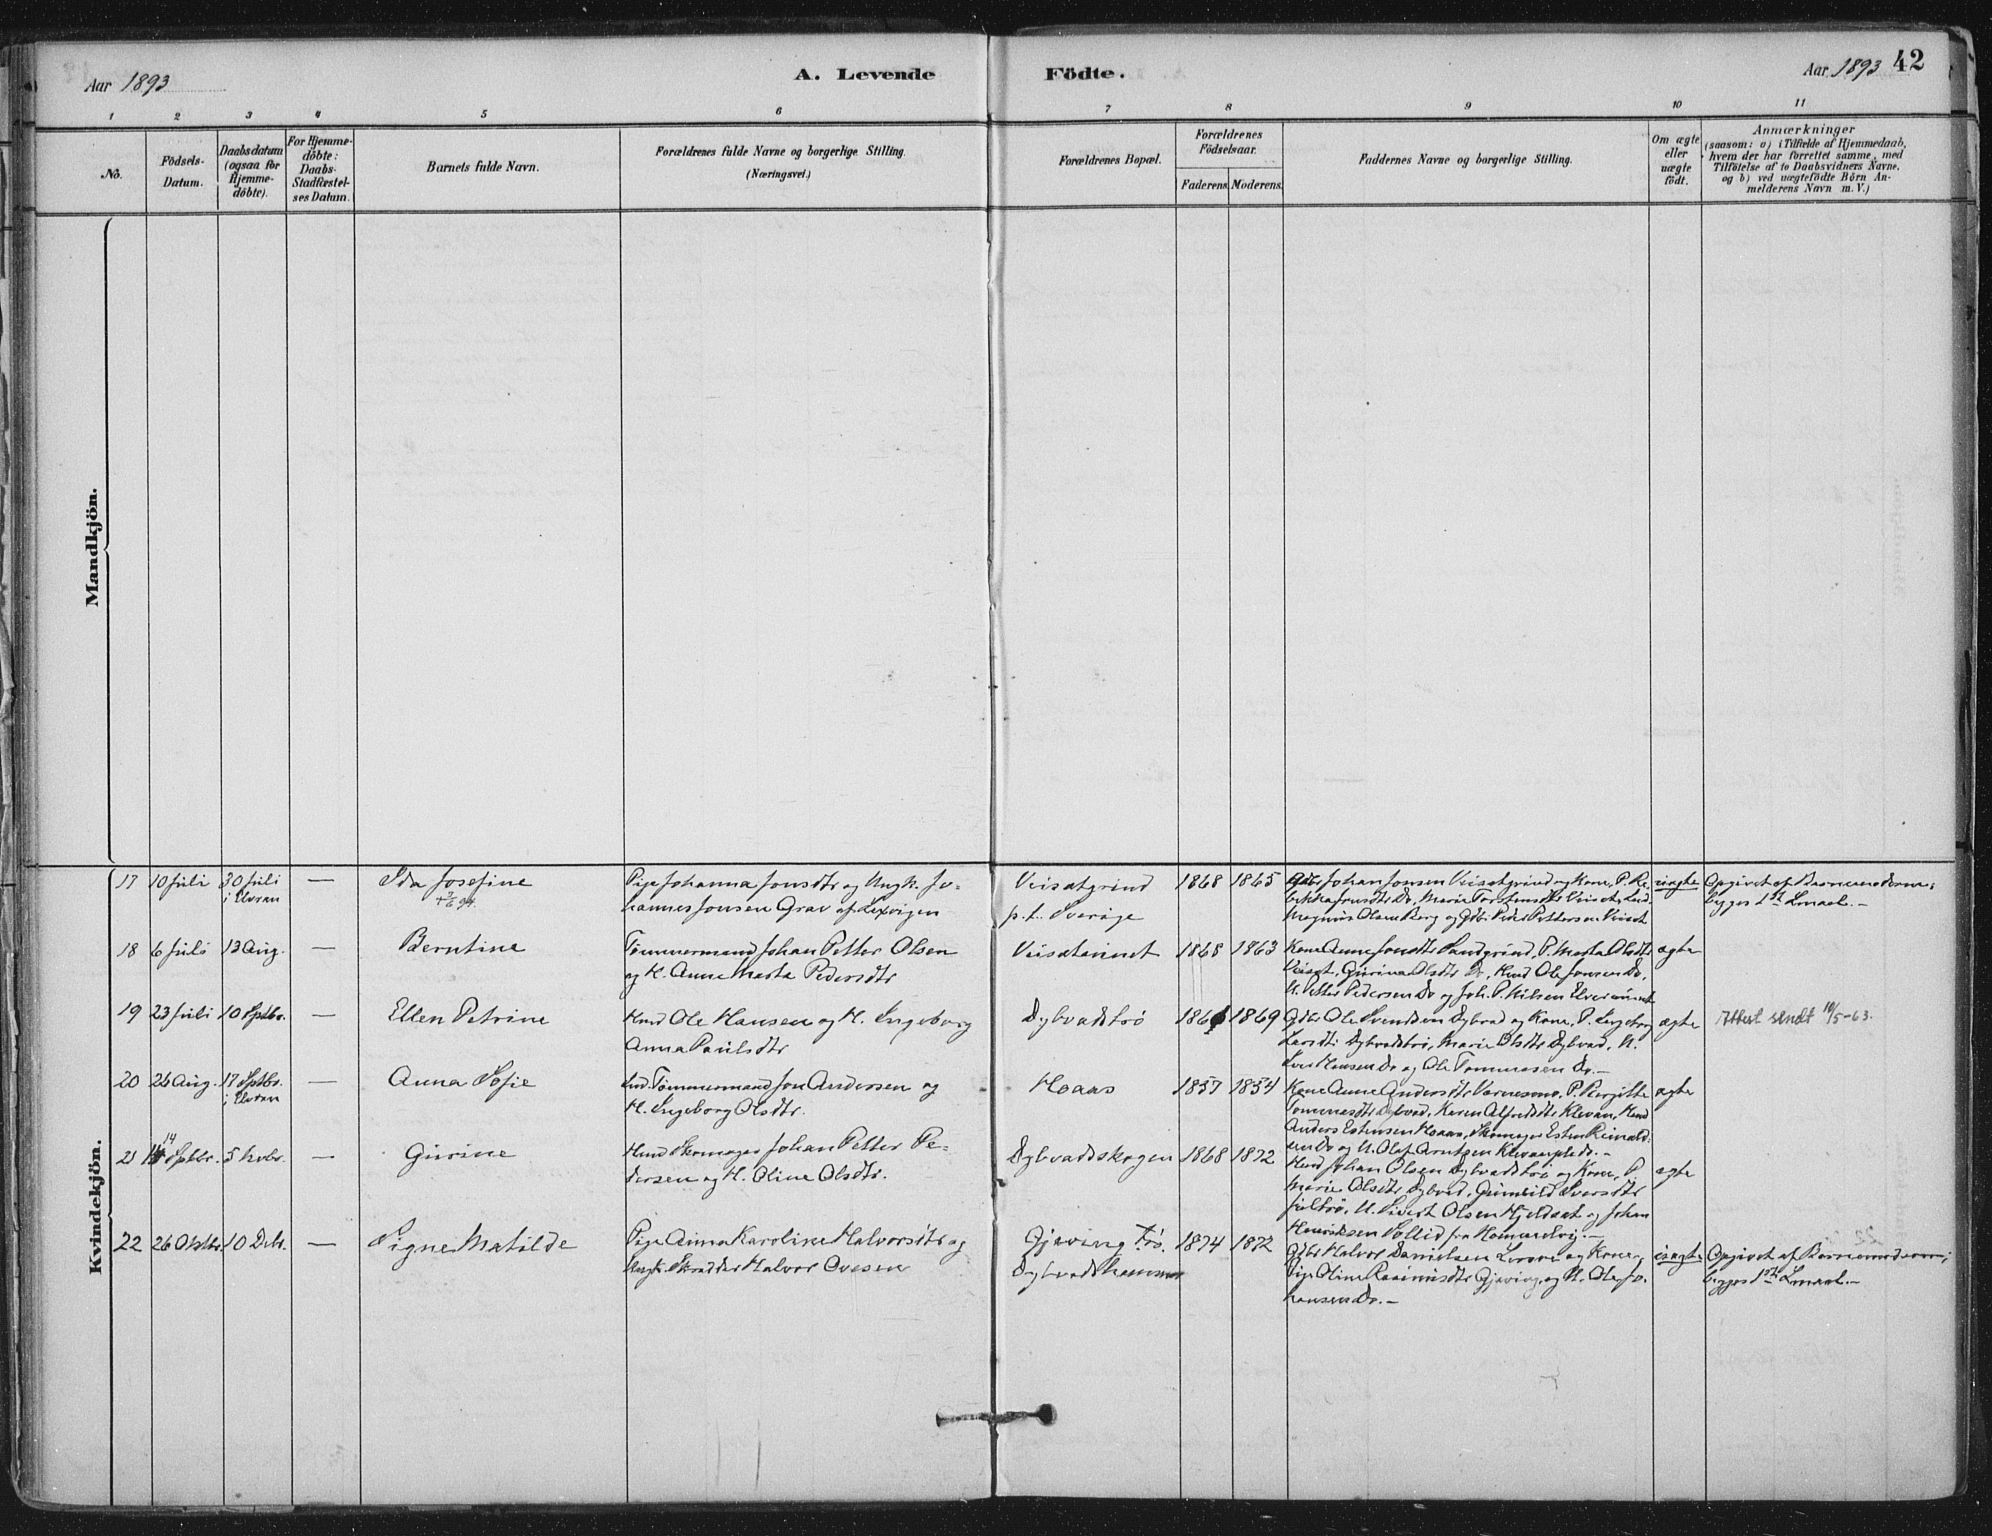 Aar 1893
A. Levende
Födte.
Aar 1893
42
1 2 3 4 5 6 7 8 9 10 11
No.
Födsels-
Datum.
Daabsdatum
(ogsaa for
Hjemme-
döbte).
For Hjemme-
döbte:
Daabs-
Stadfæstel-
ses Datum.
Barnets fulde Navn.
Forældrenes fulde Navne og borgerlige Stilling.
(Næringsvei.)
Forældrenes Bopæl.
Forældrenes
Födselsaar.
Faderens. Moderens.
Faddernes Navne og borgerlige Stilling.
Om ægte
eller
uægte
födt.
Anmærkninger
(saasom: a) i Tilfælde af Hjemmedaab,
hvem der har forrettet samme, med
Tilföielse af to Daabsvidners Navne,
og b) ved uægtefödte Börn An-
melderens Navn m. V.)
Mandkjön.
Kvindekjön.
17 10 Juli 30 Juli
i Elvran
—
Ida Josefine
Pige Johanna Jonsdtr og Ungk. Jo-
hannes Jonsen Grav af Lexvigen
Veisatgrind
p.t. Sverige
1868 1865
Gdbr Johan Jonsen Veisatgrind og Kone, P. Re-
bekka Jonsdtr Do, Marie Torstensdtr Veisat,
Magnus Olsen Berg og Gdbr Peder Pettersen Veisat
uægte
Opgivet af Barnemoderen;
begges 1ste Lmaal.—
18 6 Juli 13 Aug. —
Berntine
Tømmermand Johan Petter Olsen
og H. Anne Marta Pedersdtr
1868 1863
Kone Anne Jonsdtr Sandgrind, P. Marta Olsdtr
Veisat, Gurine Olsdtr Do, Hmd Ole Jonsen Do,
U. Petter Pedersen Do og Joh. P. Nilsen
ægte
19 23 Juli 10 Sptbr. —
Ellen Petrine
Hmd Ole Hansen og H. Ingeborg
Anna Paulsdtr
Dybvadstrø
1869
Gdbr Ole Svendsen Dybvad og Kone, P. Ingeborg
Larsdtr Dybvadstrø, Marie Olsdtr Dybvad, U.
Hansen Do og Ole Tommesen Do.—
ægte
Attest sendt 10/5-63.
20 26 Aug. 17 Sptbr.
i Elvran
—
Anna Sofie
Ind. Tømmermand Jon Andersen og
H. Ingeborg Olsdtr.
Hoaas
1857 1854
Kone Anne Andersdtr Værnesmo, P. Birgitte
Tommasdtr Dybvad, Karen Alfredsdtr Klevan, Hmd
Anders Estensen Hoaas, Skomager Esten Reinald-
sen Do og U. Olaf Arntsen Klevanplds.—
ægte
21 14 Sptbr. 5 Nvbr. —
Gurine
Hmd Skomager Johan Petter Pe-
dersen og H. Oline Olsdtr.
Dybvadsskogen
1868 1872
Hmd Johan Olsen Dybvadstrø og Kone, P.
Marie Olsdtr Dybvad, Gunhild Iversdtr
U. Sivert Olsen Hjeldsat og Johan
Henriksen Sollid fra Hommelvig.—
ægte
22 26 Oktbr 10 Debr. —
Signe Matilde
Pige Anna Karoline Halvorsdtr og
Ungk. Skrædder Halvor Ovesen
Gjeving trø.
Dybvadshammer
1874 1872
Gdbr Halvor Danielsen og Kone,
Pige Oline Rasmusdtr Gjeving, og U. Ole Jo-
hansen Do.—
uægte
Opgivet af Barnemoderen;
begges 1ste Lmaal.—